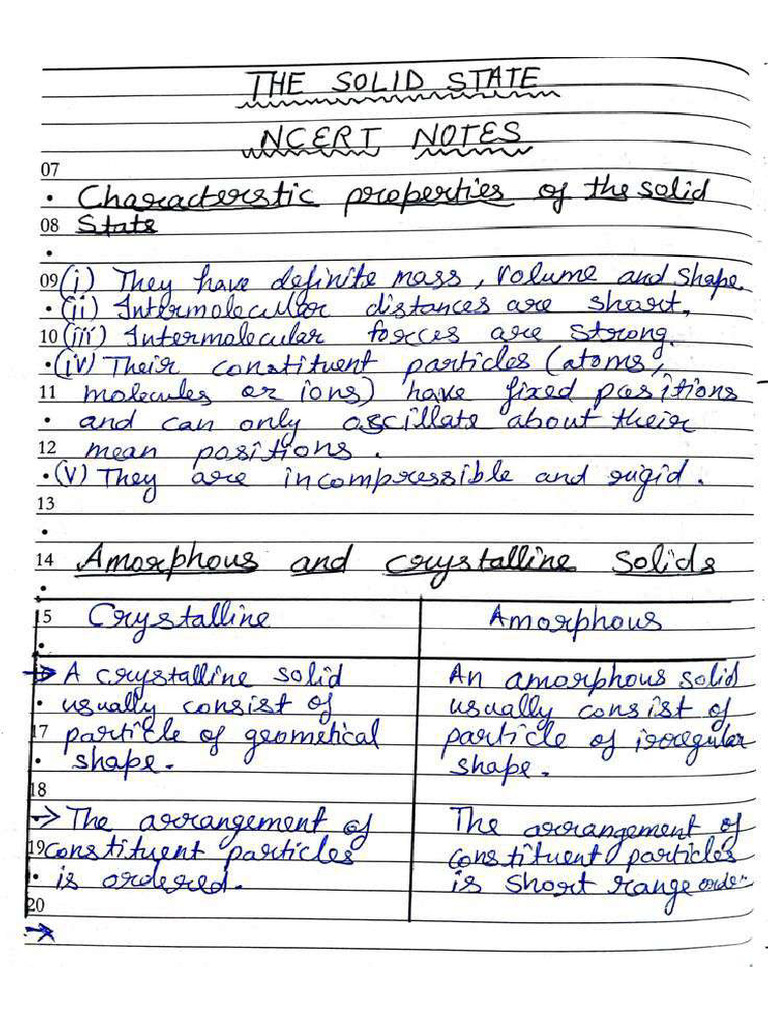 THE SOLID STATE
NCERT NOTES
07
• Characterstic properties of the solid
08 State
•
09 (i) They have definite mass, volume and shape.
• (ii) Intermolecular distances are short.
10 (iii) Intermolecular forces are strong.
• (iv) Their constituent particles (atoms,
11 molecules or ions) have fixed positions
• and can only oscillate about their
12 mean positions.
• (v) They are incompressible and rigid.
13
•
14 Amorphous and crystalline Solids
•
15 Crystalline Amorphous
•
→ A crystalline solid An amorphous solid
• usually consist of usually consist of
17 particle of geometical particle of irregular
• shape. shape.
18
→ The arrangement of The arrangement of
19 constituent particles constituent particles
• is ordered. is short range order.
20
→